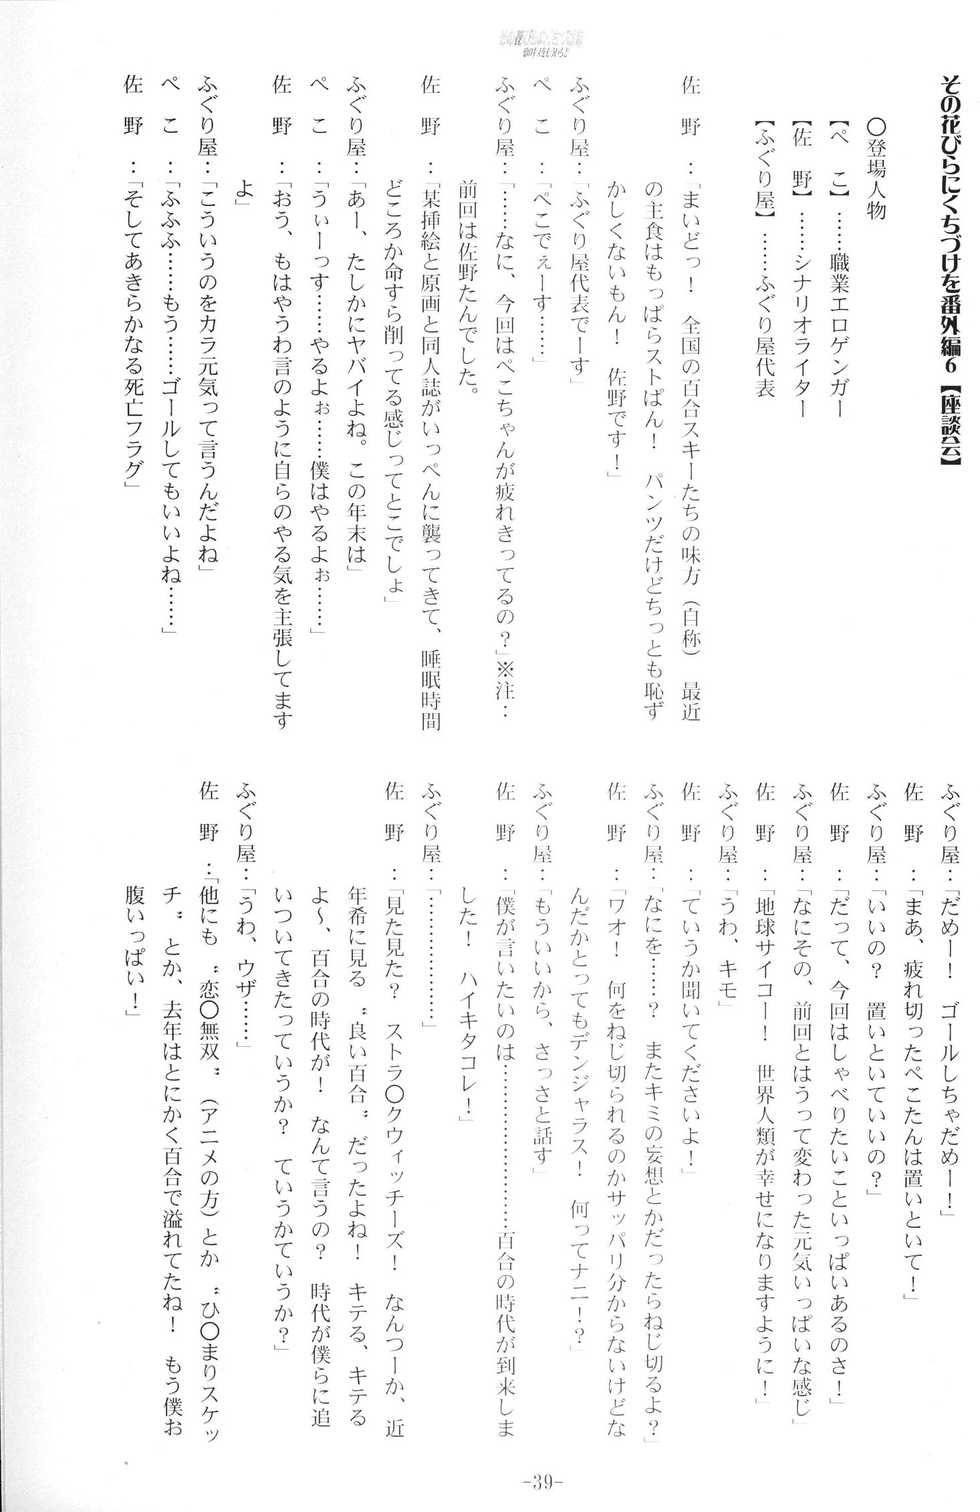 その花びらにくちづけを番外編6【座談会】
○登場人物
【ぺ　こ】……職業エロゲンガー
【佐　野】……シナリオライター
【ふぐり屋】……ふぐり屋代表
佐　野：「まいどっ！　全国の百合スキーたちの味方（自称）　最近
の主食はもっぱらストぱん！　パンツだけどちっとも恥ず
かしくないもん！　佐野です！」
ふぐり屋：「ふぐり屋代表でーす」
ぺ　こ：「ぺこでぇーす……」
ふぐり屋：「……なに、今回はぺこちゃんが疲れきってるの？」※注：
前回は佐野たんでした。
佐　野：「某挿絵と原画と同人誌がいっぺんに襲ってきて、睡眠時間
どころか命すら削ってる感じってとこでしょ」
ふぐり屋：「あー、たしかにヤバイよね。この年末は」
ぺ　こ：「うぃーっす……やるよぉ……僕はやるよぉ……」
佐　野：「おう、もはやうわ言のように自らのやる気を主張してます
よ」
ふぐり屋：「こういうのをカラ元気って言うんだよね」
ぺ　こ：「ふふふ……もう……ゴールしてもいいよね……」
佐　野：「そしてあきらかなる死亡フラグ」
ふぐり屋：「だめー！　ゴールしちゃだめー！」
佐　野：「まあ、疲れ切ったぺこたんは置いといて！」
ふぐり屋：「いいの？　置いといていいの？」
佐　野：「だって、今回はしゃべりたいこといっぱいあるのさ！」
ふぐり屋：「なにその、前回とはうって変わった元気いっぱいな感じ」
佐　野：「地球サイコー！　世界人類が幸せになりますように！」
ふぐり屋：「うわ、キモ」
佐　野：「ていうか聞いてくださいよ！」
ふぐり屋：「なにを……？　またキミの妄想とかだったらねじ切るよ？」
佐　野：「ワオ！　何をねじ切られるのかサッパリ分からないけどな
んだかとってもデンジャラス！　何ってナニ！？」
ふぐり屋：「もういいから、さっさと話す」
佐　野：「僕が言いたいのは………………百合の時代が到来しま
した！　ハイキタコレ！」
ふぐり屋：「………………」
佐　野：「見た見た？　ストラ○クウィッチーズ！　なんつーか、近
年希に見る〝良い百合〟だったよね！　キテる、キテる
よ～、百合の時代が！　なんて言うの？　時代が僕らに追
いついてきたっていうか？　ていうかていうか？」
ふぐり屋：「うわ、ウザ……」
佐　野：「他にも〝恋○無双〟（アニメの方）とか〝ひ○まりスケッ
チ〟とか、去年はとにかく百合で溢れてたね！　もう僕お
腹いっぱい！」
-39-